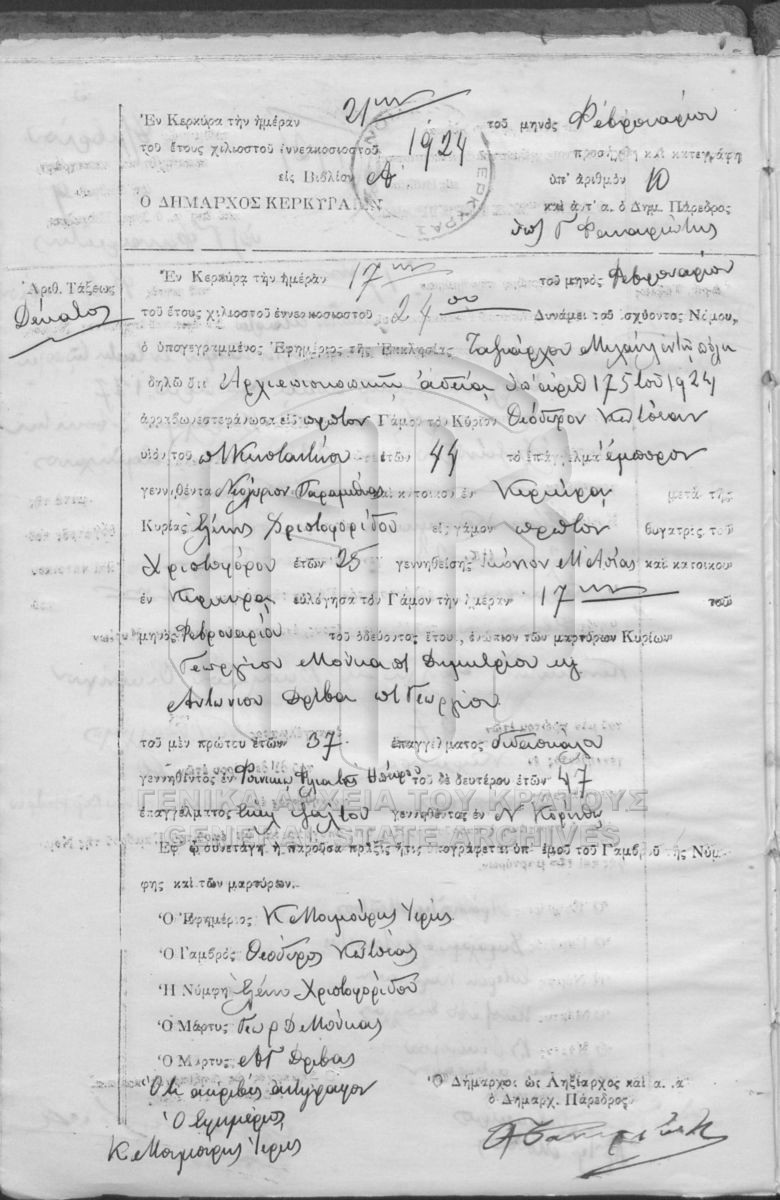 Ἐν Κερκύρᾳ τὴν ἡμέραν 21ην τοῦ μηνὸς Φεβρουαρίου
τοῦ ἔτους χιλιοστοῦ ἐννεακοσιοστοῦ 1924 προσήχθη καὶ κατεγράφη
εἰς Βιβλίον Α ὑπ' ἀριθμὸν 10
Ο ΔΗΜΑΡΧΟΣ ΚΕΡΚΥΡΑΙΩΝ καὶ ἀντ' α. ὁ Δημ. Πάρεδρος
Ἀριθ. Τάξεως
Δέκατος
Ἐν Κερκύρᾳ τὴν ἡμέραν 17ην τοῦ μηνὸς Φεβρουαρίου
τοῦ ἔτους χιλιοστοῦ ἐννεακοσιοστοῦ 24ου Δυνάμει τοῦ ἰσχύοντος Νόμου,
ὁ ὑπογεγραμμένος Ἐφημέριος τῆς Ἐκκλησίας Ταξιάρχου Μιχαὴλ ἐν τῇ πόλει
δηλῶ ὅτι Ἀρχιεπισκοπικῇ ἀδείᾳ ὑπ' ἀριθ 175 τοῦ 1924
ἀρραβωνεστεφάνωσα εἰς πρῶτον Γάμον τὸν Κύριον Θεόδωρον Κώτσιαν
υἱὸν τοῦ ἐτῶν 44 τὸ ἐπάγγελμα ἔμπορον
γεννηθέντα καὶ κάτοικον ἐν Κερκύρᾳ μετὰ τῆς
Κυρίας Ἑλένης Χριστοφορίδου εἰς γάμον πρῶτον θυγατρὸς τοῦ
Χριστοφόρου ἐτῶν 25 γεννηθείσης Μ Ἀσίας καὶ κατοίκου
ἐν Κερκύρᾳ εὐλόγησα τὸν Γάμον τὴν ἡμέραν 17ην τοῦ
μηνὸς Φεβρουαρίου τοῦ ὁδεύοντος ἔτους, ἐνώπιον τῶν μαρτύρων Κυρίων
Γεωργίου Μούκα Δημητρίου
Ἀντωνίου Δρίβα Γεωργίου
τοῦ μὲν πρώτου ἐτῶν 37 ἐπαγγέλματος διδασκάλου
γεννηθέντος ἐν Φιλιατῶν Ἠπείρου τοῦ δὲ δευτέρου ἐτῶν 47
ΓΕΝΙΚΑ ΑΡΧΕΙΑ ΤΟΥ ΚΡΑΤΟΥΣ
ἐπαγγέλματος γεννηθέντος ἐν
GENERAL STATE ARCHIVES
Ἐφ' ᾧ συνετάγη ἡ παροῦσα πρᾶξις ἥτις ὑπογράφεται ὑπ' ἐμοῦ τοῦ Γαμβροῦ τῆς Νύμ-
φης καὶ τῶν μαρτύρων.
Ὁ Ἐφημέριος Κ Μουμούρης Ἱερεὺς
Ὁ Γαμβρὸς Θεόδωρος Κώτσιας
Ἡ Νύμφη Ἑλένη Χριστοφορίδου
Ὁ Μάρτυς Γεωρ Δ Μούκας
Ὁ Μάρτυς Α Γ Δρίβας
Ὅτι ἀκριβὲς ἀντίγραφον
Ὁ Ἐφημέριος
Κ Μουμούρης Ἱερεὺς
Ὁ Δήμαρχος ὡς Ληξίαρχος καὶ ἀ. ἀ
ὁ Δημαρχ. Πάρεδρος